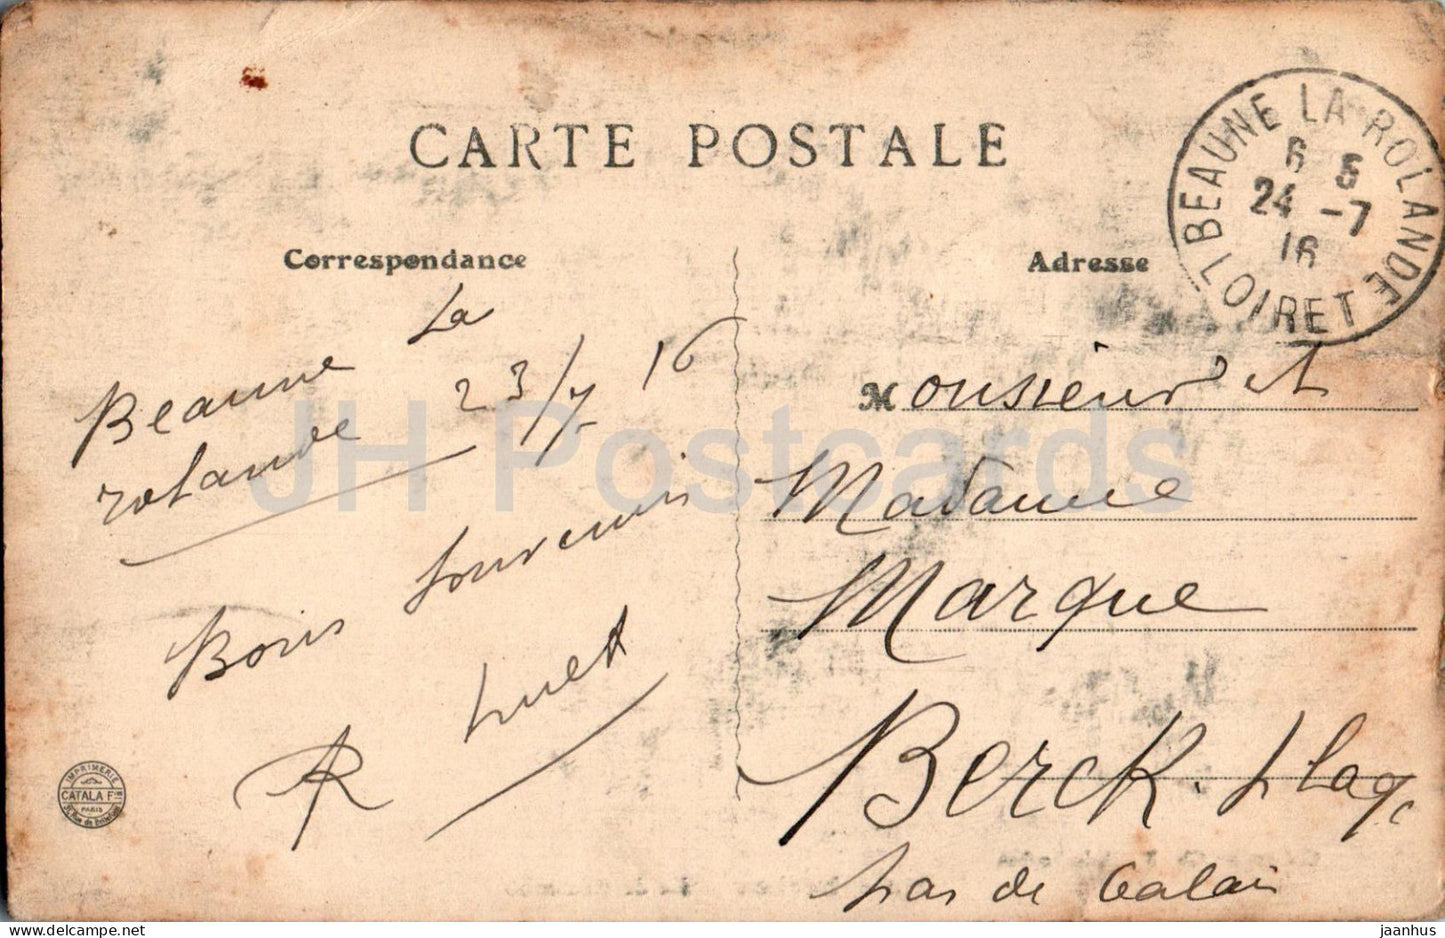 CARTE POSTALE
BEAUNE LA ROLANDE
6 5
24 -7
16
LOIRET
Correspondance
Adresse
Beaune La
rolande 23/7 16
Bons souvenirs
R Huet
Monsieur et
Madame
Marque
Berck. plage
pas de Calais
IMPRIMERIE
CATALA Fres
PARIS
JH Postcards
jaanhus